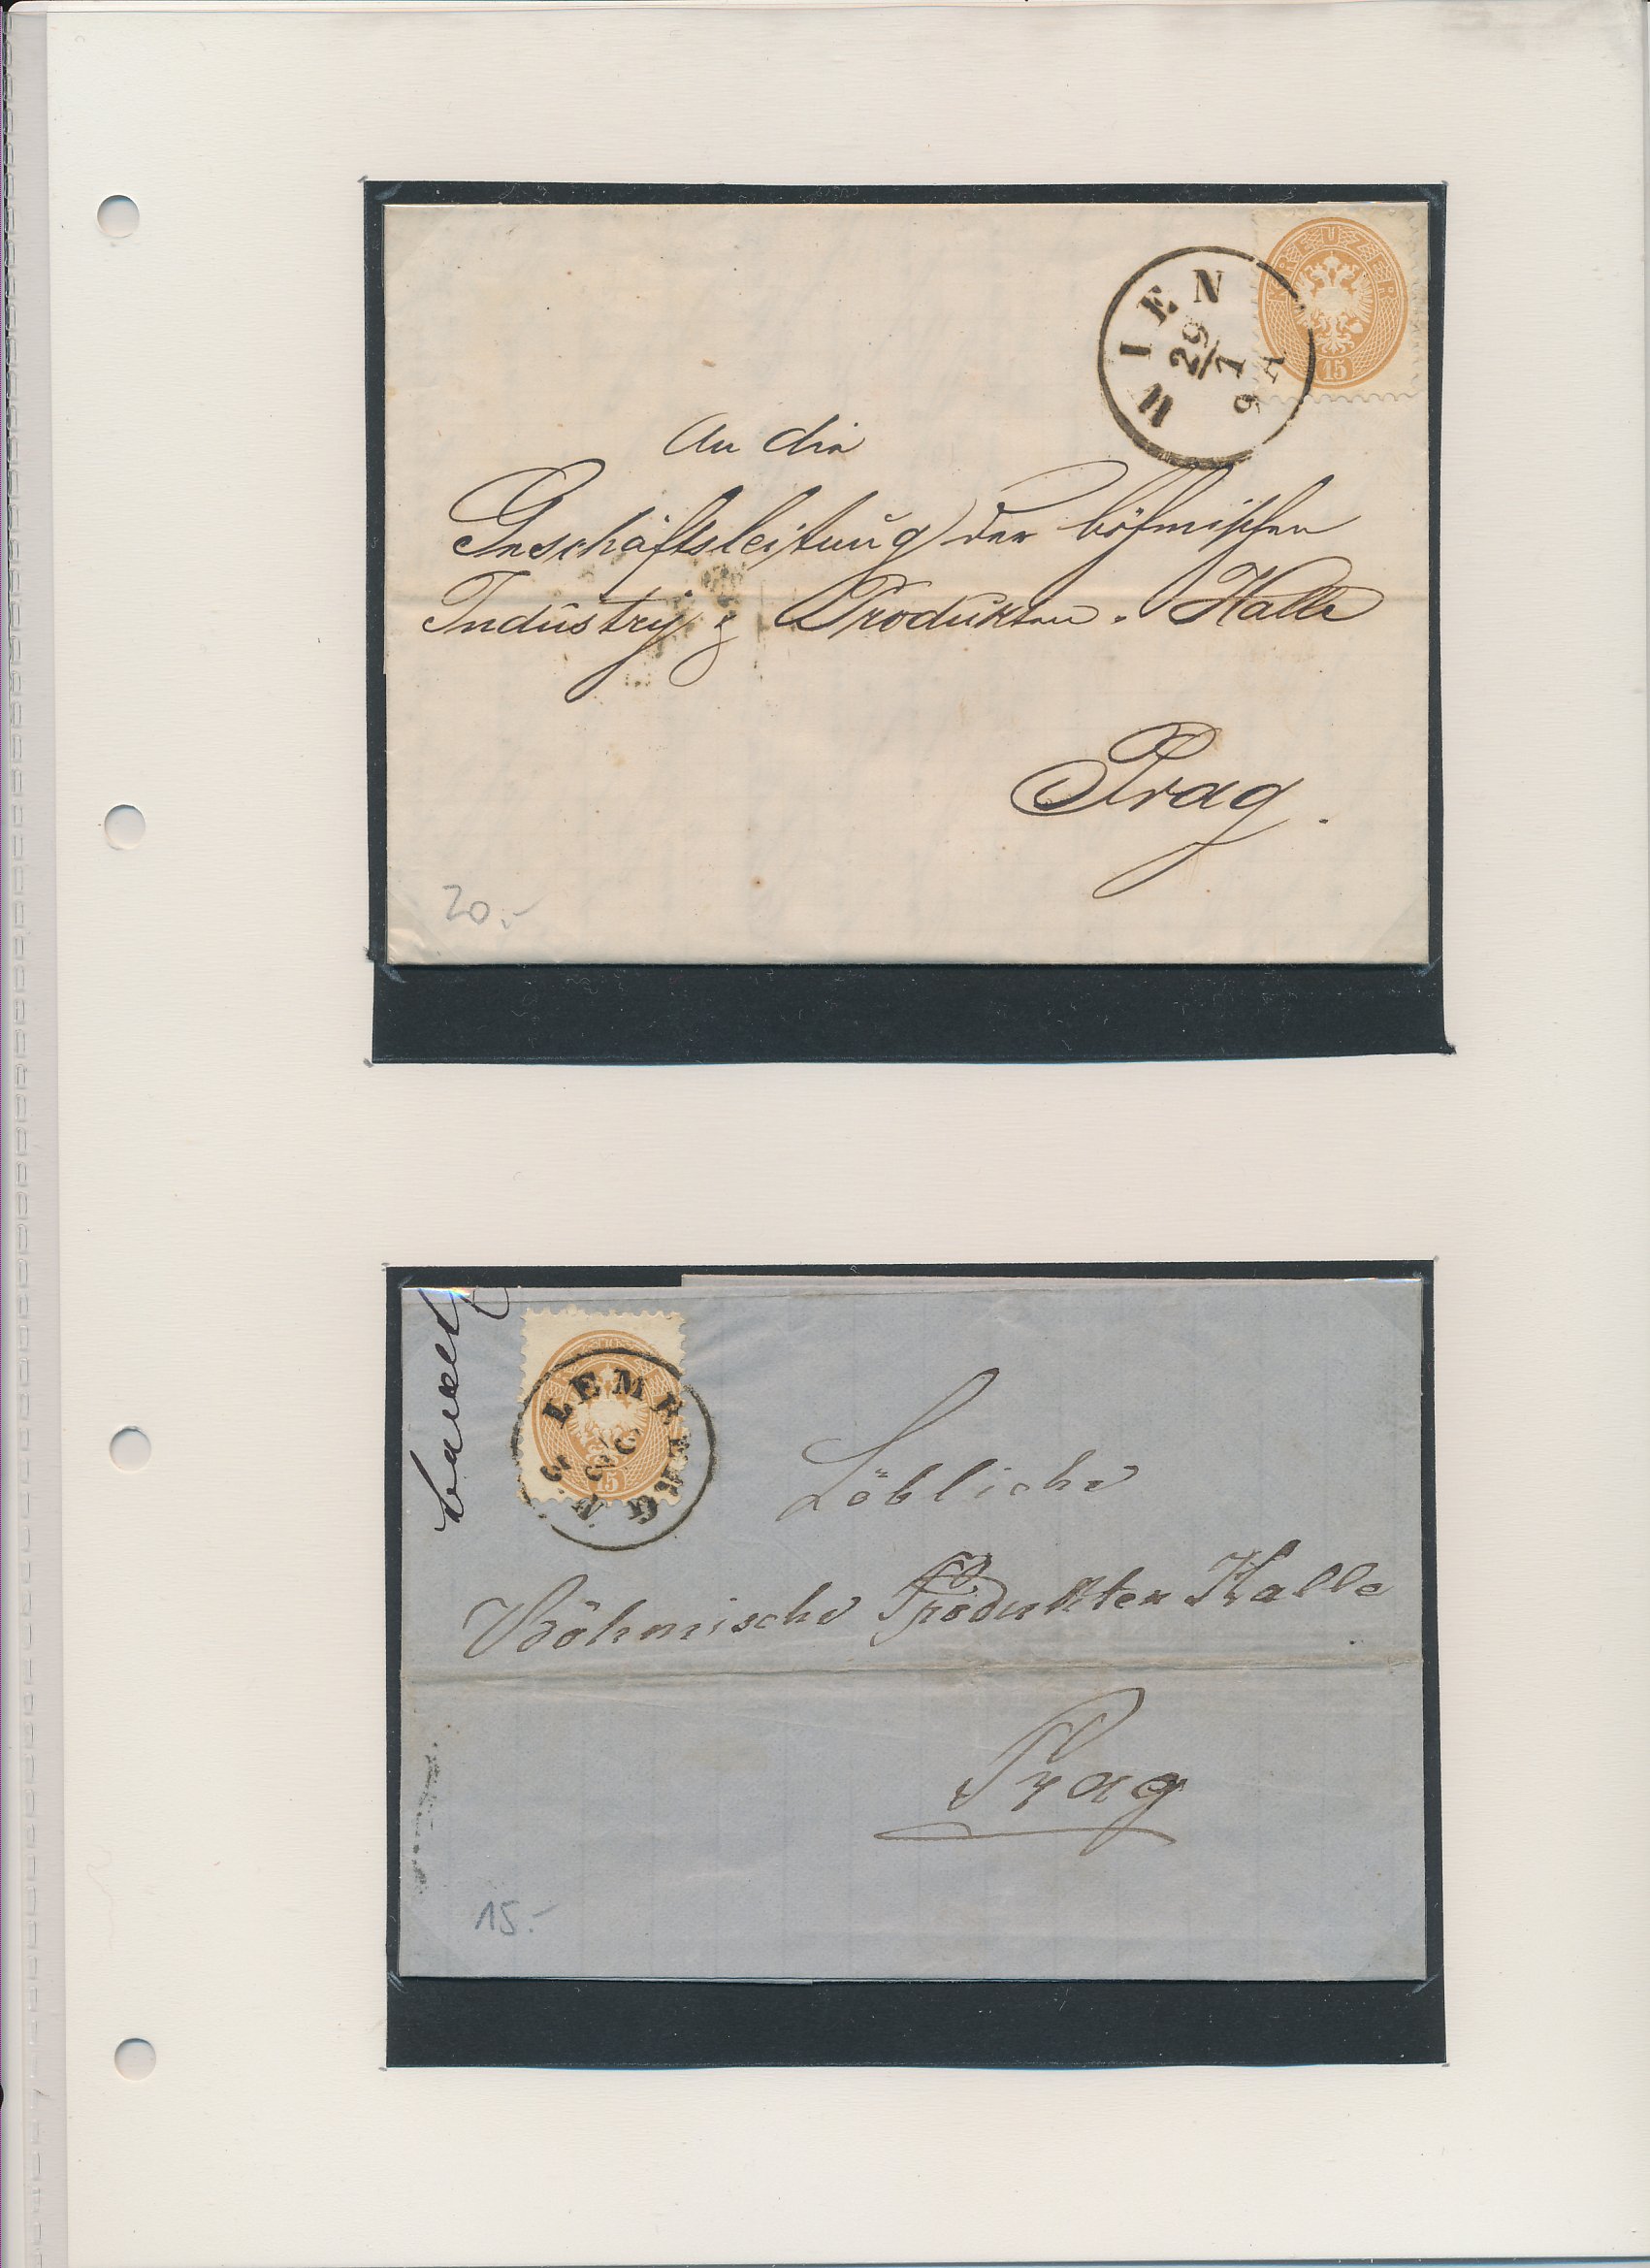 KREUZER
15
WIEN
29/1
9 A
An die
Geschäftsleitung der böhmischen
Industry & Produkten. Halle
Prag.
20.-
15
LEMBERG
Löbliche
Böhmische Produkten Halle
Prag
15.-